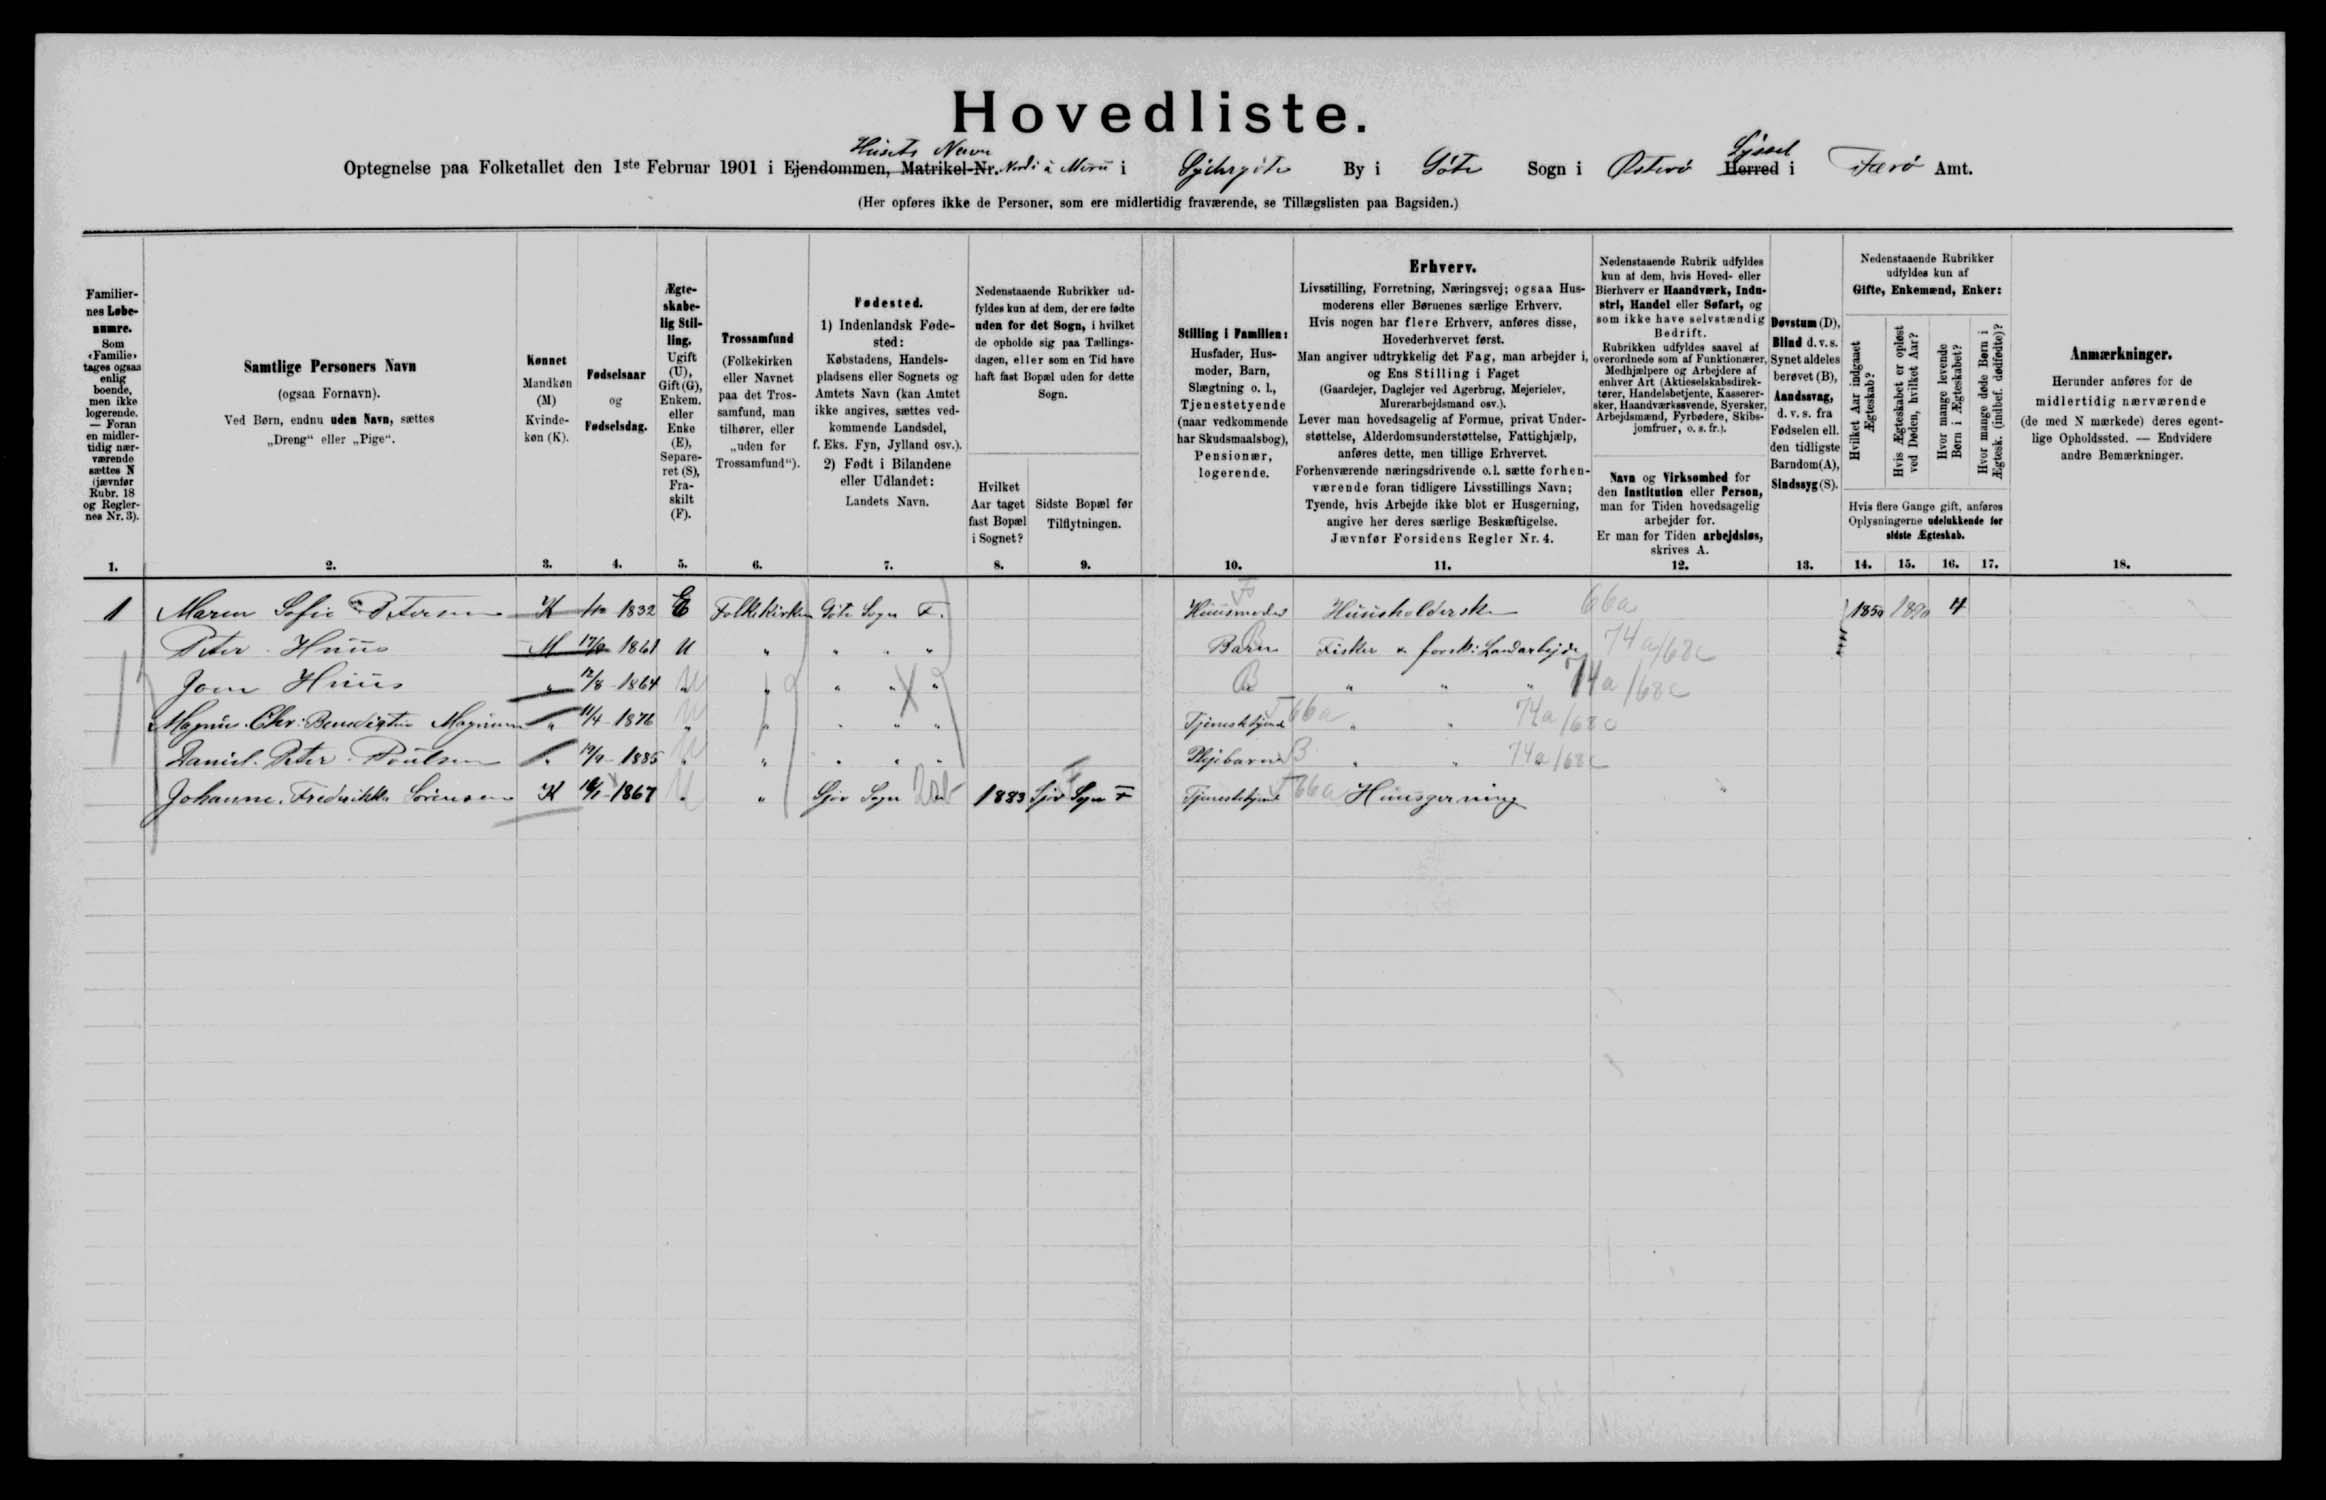 Hovedliste.
Husets Navn Syssel
Optegnelse paa Folketallet den 1ste Februar 1901 i Ejendommen, Matrikel-Nr. i By i Göte Sogn i Østerö Herred i Færö Amt.
(Her opføres ikke de Personer, som ere midlertidig fraværende, se Tillægslisten paa Bagsiden.)
Familiernes Løbenumre.
Som «Familie» tages ogsaa enlig boende, men ikke logerende. — Foran en midlertidig nærværende sættes N (jævnfør Rubr. 18 og Reglernes Nr. 3).
Samtlige Personers Navn
(ogsaa Fornavn).
Ved Børn, endnu uden Navn, sættes
„Dreng“ eller „Pige“.
Kønnet
Mandkøn (M)
Kvindekøn (K).
Fødselsaar
og
Fødselsdag.
Ægteskabelig Stilling.
Ugift (U), Gift (G), Enkem. eller Enke (E), Separeret (S), Fraskilt (F).
Trossamfund
(Folkekirken eller Navnet paa det Trossamfund, man tilhører, eller „uden for Trossamfund“).
Fødested.
1) Indenlandsk Fødested:
Købstadens, Handelspladsens eller Sognets og Amtets Navn (kan Amtet ikke angives, sættes vedkommende Landsdel, f. Eks. Fyn, Jylland osv.).
2) Født i Bilandene eller Udlandet:
Landets Navn.
Nedenstaaende Rubrikker udfyldes kun af dem, der ere fødte uden for det Sogn, i hvilket de opholde sig paa Tællingsdagen, eller som en Tid have haft fast Bopæl uden for dette Sogn.
Hvilket Aar taget fast Bopæl i Sognet?
Sidste Bopæl før Tilflytningen.
Stilling i Familien:
Husfader, Husmoder, Barn, Slægtning o. l., Tjenestetyende (naar vedkommende har Skudsmaalsbog), Pensionær, logerende.
Erhverv.
Livsstilling, Forretning, Næringsvej; ogsaa Husmoderens eller Børnenes særlige Erhverv.
Hvis nogen har flere Erhverv, anføres disse, Hovederhvervet først.
Man angiver udtrykkelig det Fag, man arbejder i, og Ens Stilling i Faget
(Gaardejer, Daglejer ved Agerbrug, Mejerielev, Murerarbejdsmand osv.).
Lever man hovedsagelig af Formue, privat Understøttelse, Alderdomsunderstøttelse, Fattighjælp, anføres dette, men tillige Erhvervet.
Forhenværende næringsdrivende o.l. sætte forhenværende foran tidligere Livsstillings Navn;
Tyende, hvis Arbejde ikke blot er Husgerning, angive her deres særlige Beskæftigelse.
Jævnfør Forsidens Regler Nr. 4.
Nedenstaaende Rubrik udfyldes kun af dem, hvis Hoved- eller Bierhverv er Haandværk, Industri, Handel eller Søfart, og som ikke have selvstændig Bedrift.
Rubrikken udfyldes saavel af overordnede som af Funktionærer, Medhjælpere og Arbejdere af enhver Art (Aktieselskabsdirektører, Handelsbetjente, Kasserersker, Haandværkssvende, Syersker, Arbejdsmænd, Fyrbødere, Skibsjomfruer, o. s. fr.).
Navn og Virksomhed for den Institution eller Person, man for Tiden hovedsagelig arbejder for.
Er man for Tiden arbejdsløs, skrives A.
Døvstum (D), Blind d. v. s. Synet aldeles berøvet (B), Aandssvag, d. v. s. fra Fødselen ell. den tidligste Barndom (A), Sindssyg (S).
Nedenstaaende Rubrikker udfyldes kun af Gifte, Enkemænd, Enker:
Hvilket Aar indgaaet Ægteskab?
Hvis Ægteskabet er opløst ved Døden, hvilket Aar?
Hvor mange levende Børn i Ægteskabet?
Hvor mange døde Børn i Ægtesk. (indbef. dødfødte)?
Hvis flere Gange gift, anføres Oplysningerne udelukkende for sidste Ægteskab.
Anmærkninger.
Herunder anføres for de midlertidig nærværende (de med N mærkede) deres egentlige Opholdssted. — Endvidere andre Bemærkninger.
1. 2. 3. 4. 5. 6. 7. 8. 9. 10. 11. 12. 13. 14. 15. 16. 17. 18.
1 Maren Sofie Petersen K 1832 E Folkekirken Göte Sogn F. Huusmoder Huusholderske 66a 1850 1890 4
Peter Huus M 1861 U " " " " Barn Fisker & Landarbejder 74a/68c
Joen Huus " 12/8 1864 " " " " " B " " " 74a/68c
Magnus Chr: 11/4 1876 " " " " " Tjenestetyende 66a " " 74a/68c
Daniel Peter Poulsen " 1885 " " " " " Plejebarn B " " 74a/68c
Johanne Frederikke Sörensen K 1867 " " Gjov Sogn 1883 Gjov Sogn F Tjenestetyende 66a Huusgerning